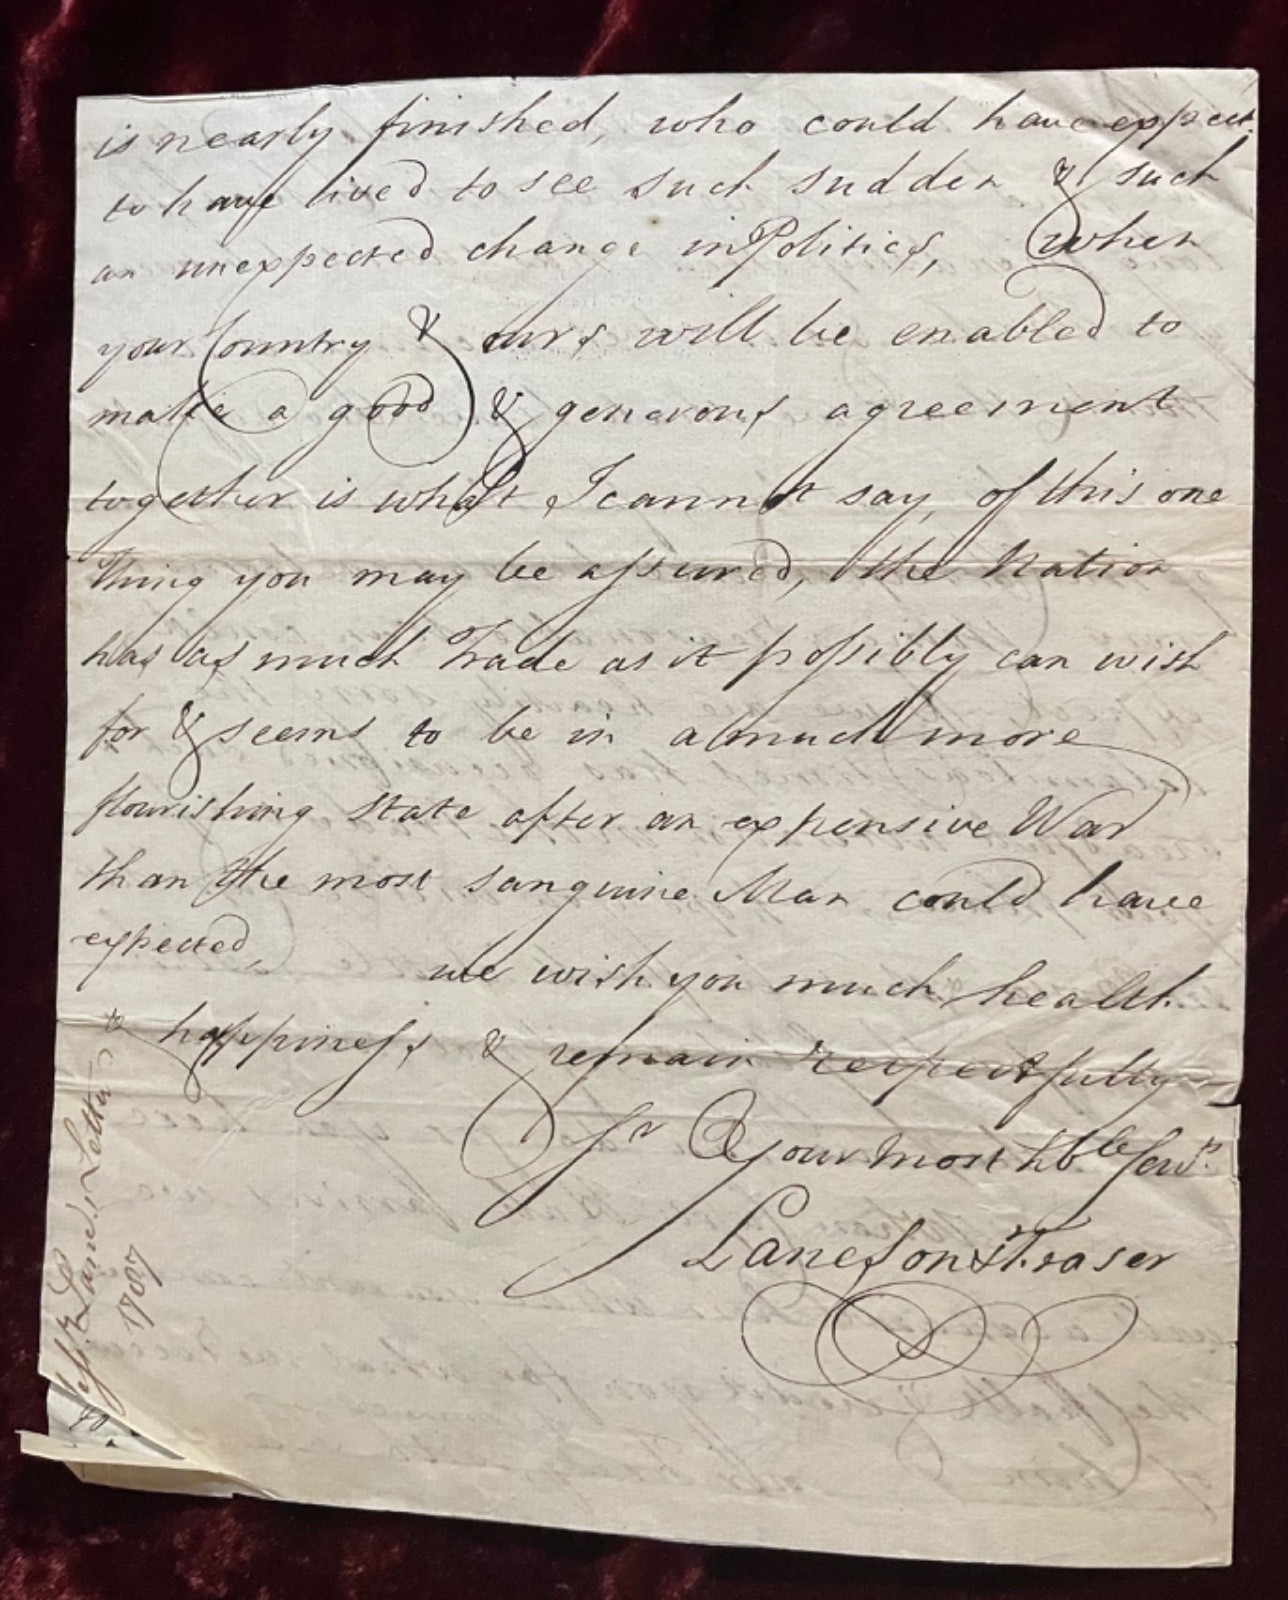 is nearly finished, who could have expect
to have lived to see such sudden & such
an unexpected change in Politics, when
your Country & ours will be enabled to
make a good & generous agreement
together is what I cannot say, of this one
thing you may be assured, the Nation
has as much Trade as it possibly can wish
for & seems to be in a much more
flourishing state after an expensive War
than the most sanguine Man could have
expected,
we wish you much health
& happiness & remain respectfully
Sr Your most hble Servts
Lane Son & Fraser
Messrs Lanes Letter
1787